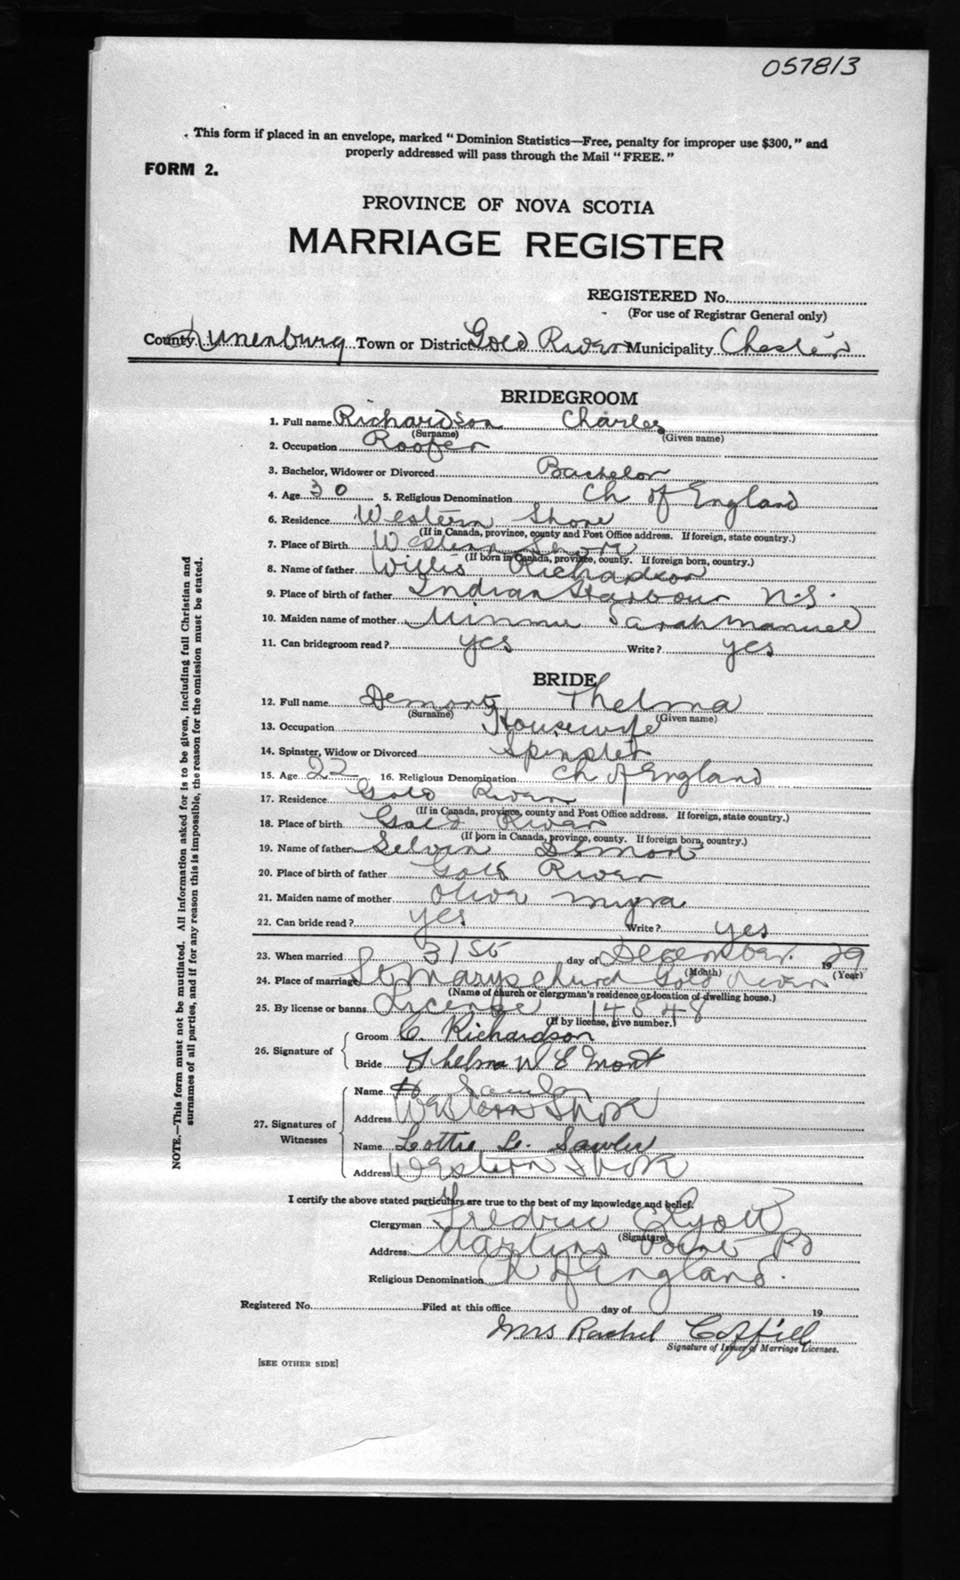 057813
This form if placed in an envelope, marked "Dominion Statistics—Free, penalty for improper use $300," and
properly addressed will pass through the Mail "FREE."
FORM 2.
PROVINCE OF NOVA SCOTIA
MARRIAGE REGISTER
REGISTERED No.
(For use of Registrar General only)
County Lunenburg Town or District Gold River Municipality Chester
BRIDEGROOM
1. Full name Richardson Charles
(Surname) (Given name)
2. Occupation Roofer
3. Bachelor, Widower or Divorced Bachelor
4. Age 30 5. Religious Denomination Ch of England
6. Residence Western Shore
(If in Canada, province, county and Post Office address. If foreign, state country.)
7. Place of Birth Western Shore
(If born in Canada, province, county. If foreign born, country.)
8. Name of father Willis Richardson
9. Place of birth of father Indian Harbour N.S.
10. Maiden name of mother Minnie Sarah Manuel
11. Can bridegroom read? yes Write? yes
BRIDE
12. Full name Demont Thelma
(Surname) (Given name)
13. Occupation Housewife
14. Spinster, Widow or Divorced Spinster
15. Age 22 16. Religious Denomination Ch of England
17. Residence Gold River
(If in Canada, province, county and Post Office address. If foreign, state country.)
18. Place of birth Gold River
(If born in Canada, province, county. If foreign born, country.)
19. Name of father Selvin Demont
20. Place of birth of father Gold River
21. Maiden name of mother Olive Myra
22. Can bride read? yes Write? yes
23. When married 31st day of December 1929
(Month) (Year)
24. Place of marriage St Marys church Gold River
(Name of church or clergyman's residence or location of dwelling house.)
25. By license or banns License 14548
(If by license, give number.)
26. Signature of
Groom C. Richardson
Bride Thelma W E Mont
27. Signatures of Witnesses
Name
Address Western Shore
Name Lottie L. Sawler
Address Western Shore
I certify the above stated particulars are true to the best of my knowledge and belief.
Clergyman Fredric
(Signature)
Address Martins Point
Religious Denomination Ch of England.
Registered No. Filed at this office day of 19
Mrs Rachel Coffill
Signature of Issuer of Marriage Licenses.
[SEE OTHER SIDE]
NOTE.—This form must not be mutilated. All information asked for is to be given, including full Christian and
surnames of all parties, and if for any reason this is impossible, the reason for the omission must be stated.